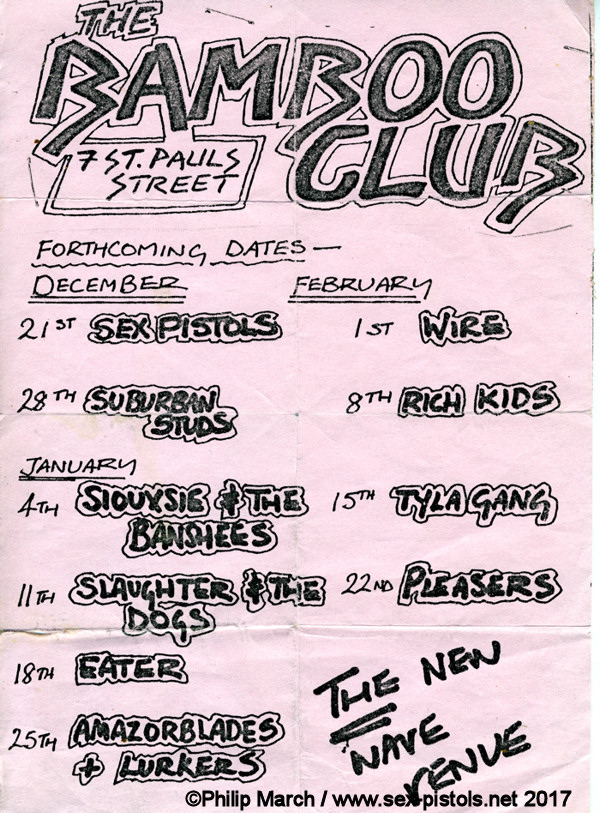 THE
BAMBOO
CLUB
7 ST. PAULS
STREET
FORTHCOMING DATES —
DECEMBER
21ST SEX PISTOLS
28TH SUBURBAN
STUDS
JANUARY
4TH SIOUYSIE & THE
BANSHEES
11TH SLAUGHTER & THE
DOGS
18TH EATER
25TH AMAZORBLADES
+ LURKERS
FEBRUARY
1ST WIRE
8TH RICH KIDS
15TH TYLA GANG
22ND PLEASERS
THE NEW
WAVE
VENUE
©Philip March / www.sex-pistols.net 2017